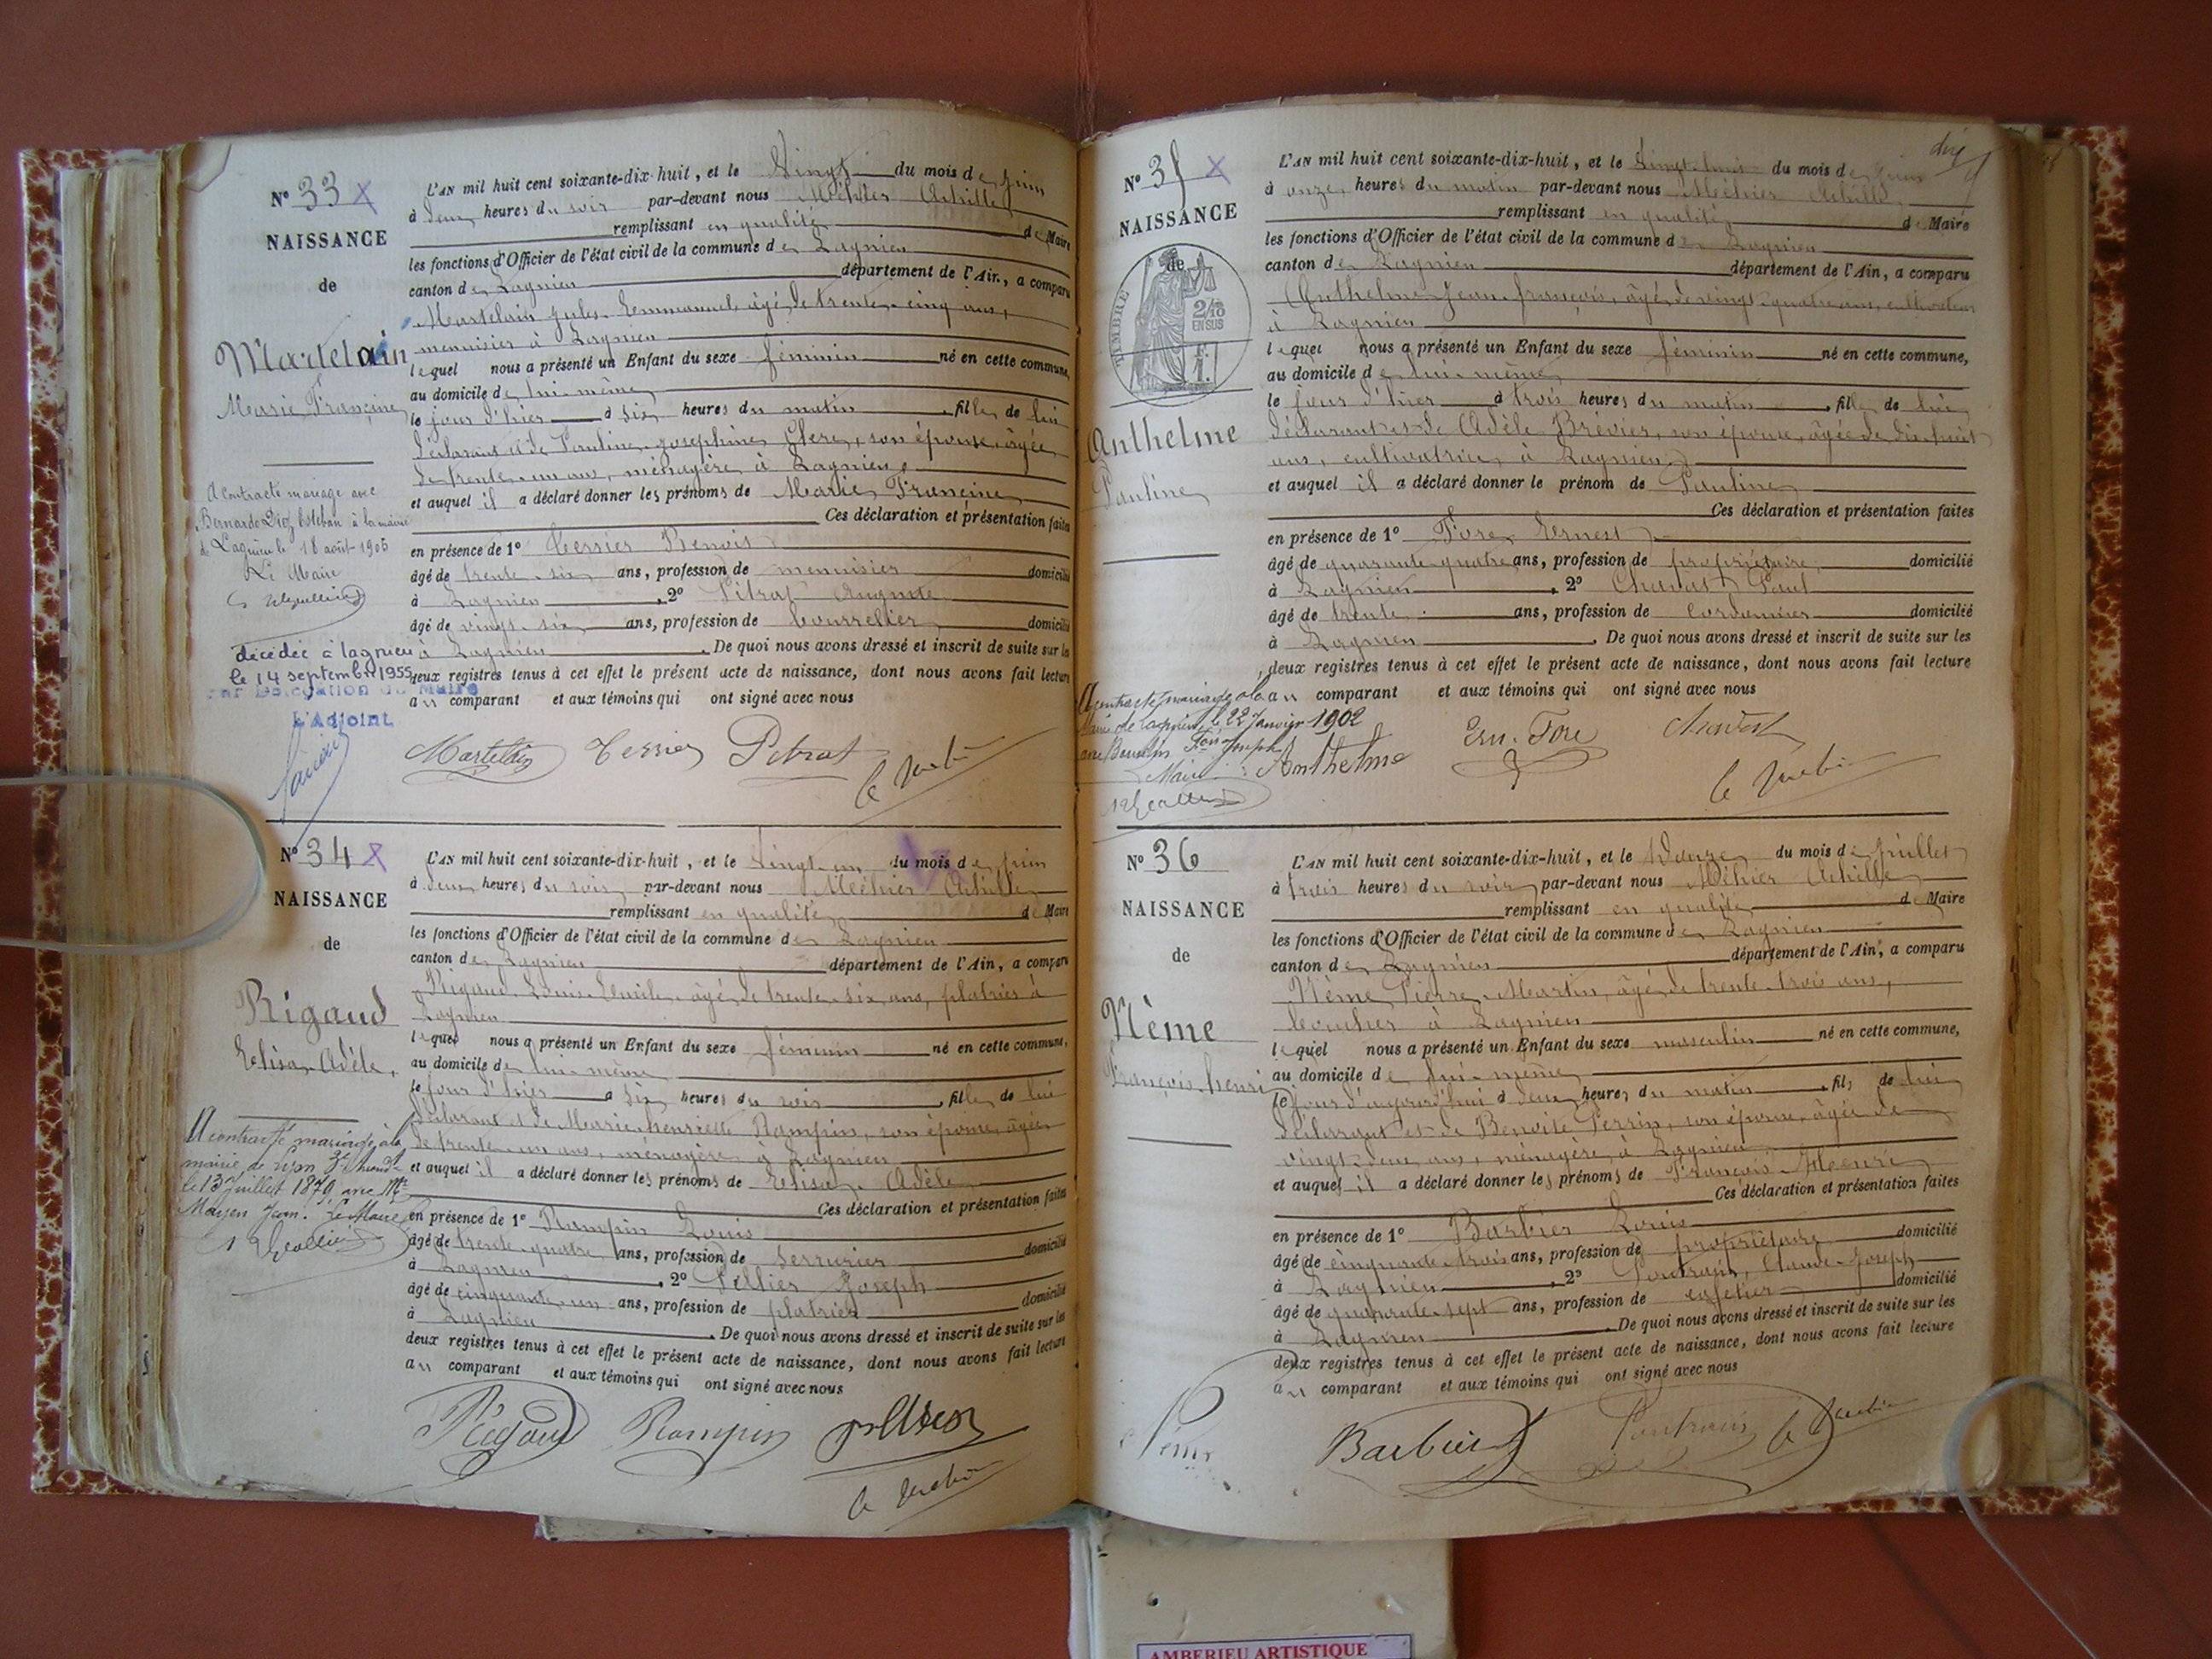 N° 33
NAISSANCE
de
Martelain
Marie Francine
A contracté mariage avec
Bernardo Diez Esteban à la mairie
de Lagnieu le 18 août 1905
Le Maire
décédée à lagnieu
le 14 septembre 1955
par Délégation du Maire
L'Adjoint
L'AN mil huit cent soixante-dix-huit, et le Vingt du mois de juin
à deux heures du soir par-devant nous Méhier Achille
remplissant en qualité de Maire
les fonctions d'Officier de l'état civil de la commune de Lagnieu
canton de Lagnieu département de l'Ain, a comparu
Martelain Jules Emmanuel, âgé de trente-cinq ans,
menuisier à Lagnieu
lequel nous a présenté un Enfant du sexe féminin né en cette commune,
au domicile de lui-même
le jour d'hier à six heures du matin, fille de lui
déclarant et de Pauline Josephine Clerc, son épouse, âgée
de trente-un ans, ménagère à Lagnieu,
et auquel il a déclaré donner les prénoms de Marie Francine
Ces déclaration et présentation faites
en présence de 1° Terrier Benoit
âgé de trente-six ans, profession de menuisier domicilié
à Lagnieu, 2° Pitrat Auguste
âgé de vingt-six ans, profession de bourrelier domicilié
à Lagnieu. De quoi nous avons dressé et inscrit de suite sur les
deux registres tenus à cet effet le présent acte de naissance, dont nous avons fait lecture
au comparant et aux témoins qui ont signé avec nous
Martelain Terrier Pitrat
N° 34
NAISSANCE
de
Rigaud
Elisa Adèle,
A contracté mariage à la
mairie de Lyon 3e Arrondt
le 13 juillet 1879 avec Mr
Mayen Jean. Le Maire
L'AN mil huit cent soixante-dix-huit, et le Vingt-un du mois de juin
à deux heures du soir par-devant nous Méhier Achille
remplissant en qualité de Maire
les fonctions d'Officier de l'état civil de la commune de Lagnieu
canton de Lagnieu département de l'Ain, a comparu
Rigaud Louis Emile, âgé de trente-six ans, platrier à
Lagnieu
lequel nous a présenté un Enfant du sexe féminin né en cette commune,
au domicile de lui-même
le jour d'hier à six heures du soir, fille de lui
déclarant et de Marie Henriette Rampin, son épouse, âgée
de trente-un ans, ménagère à Lagnieu
et auquel il a déclaré donner les prénoms de Elisa Adèle
Ces déclaration et présentation faites
en présence de 1° Rampin Louis
âgé de trente-quatre ans, profession de serrurier domicilié
à Lagnieu, 2° Pellier Joseph
âgé de cinquante-un ans, profession de platrier domicilié
à Lagnieu. De quoi nous avons dressé et inscrit de suite sur les
deux registres tenus à cet effet le présent acte de naissance, dont nous avons fait lecture
au comparant et aux témoins qui ont signé avec nous
Rigaud Rampin
N° 35
NAISSANCE
de
TIMBRE
2/10
EN SUS
Anthelme
Pauline
A contracté mariage à la
Mairie de Lagnieu le 22 Janvier 1902
avec
Maire
L'AN mil huit cent soixante-dix-huit, et le Vingt-huit du mois de juin
à onze heures du matin par-devant nous Méhier Achille
remplissant en qualité de Maire
les fonctions d'Officier de l'état civil de la commune de Lagnieu
canton de Lagnieu département de l'Ain, a comparu
Anthelme Jean François, âgé de vingt-quatre ans, cultivateur
à Lagnieu
lequel nous a présenté un Enfant du sexe féminin né en cette commune,
au domicile de lui-même
le jour d'hier à trois heures du matin, fille de lui
déclarant et de Adèle Brévier, son épouse, âgée de dix-huit
ans, cultivatrice, à Lagnieu
et auquel il a déclaré donner le prénom de Pauline
Ces déclaration et présentation faites
en présence de 1° Fore Ernest
âgé de quarante-quatre ans, profession de propriétaire domicilié
à Lagnieu, 2° Chavat Paul
âgé de trente ans, profession de Cordonnier domicilié
à Lagnieu. De quoi nous avons dressé et inscrit de suite sur les
deux registres tenus à cet effet le présent acte de naissance, dont nous avons fait lecture
au comparant et aux témoins qui ont signé avec nous
Anthelme Ern. Fore Chavat
N° 36
NAISSANCE
de
Nème
François Henri
L'AN mil huit cent soixante-dix-huit, et le Douze du mois de juillet
à trois heures du soir par-devant nous Méhier Achille
remplissant en qualité de Maire
les fonctions d'Officier de l'état civil de la commune de Lagnieu
canton de Lagnieu département de l'Ain, a comparu
Nème Pierre Martin, âgé de trente-trois ans,
boucher à Lagnieu
lequel nous a présenté un Enfant du sexe masculin né en cette commune,
au domicile de lui-même
le jour d'aujourd'hui à deux heures du matin, fils de lui
déclarant et de Benoite Perrin, son épouse, âgée de
vingt-deux ans, ménagère à Lagnieu
et auquel il a déclaré donner les prénoms de François Henri
Ces déclaration et présentation faites
en présence de 1° Barbier Louis
âgé de cinquante-trois ans, profession de propriétaire domicilié
à Lagnieu, 2° Poutrain, Claude Joseph
âgé de quarante-sept ans, profession de cafetier domicilié
à Lagnieu. De quoi nous avons dressé et inscrit de suite sur les
deux registres tenus à cet effet le présent acte de naissance, dont nous avons fait lecture
au comparant et aux témoins qui ont signé avec nous
Nème Barbier Poutrain
AMBERIEU ARTISTIQUE